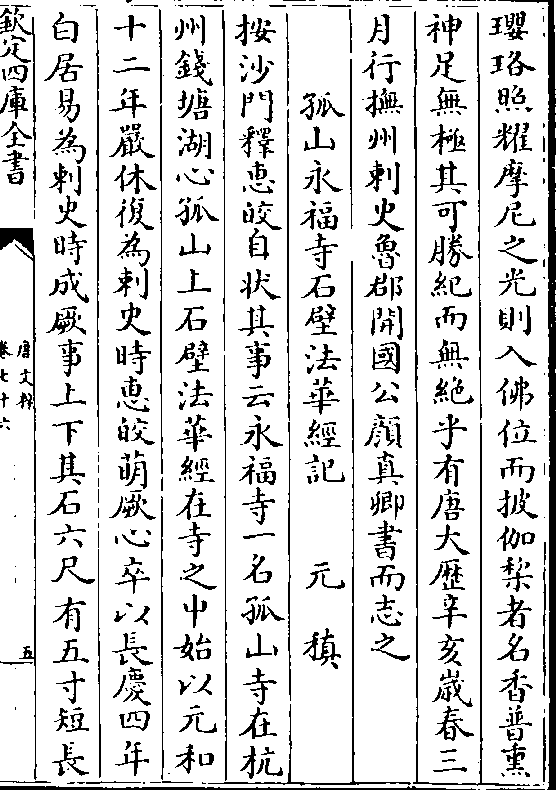 瓔珞照耀摩尼之光則入佛位而披伽棃者名香普熏
神足無極其可勝紀而無絶乎有唐大歴辛亥嵗春三
月行撫州刺史魯郡開國公顔真卿書而志之
孤山永福寺石壁法華經記 元稹
按沙門釋惠皎自状其事云永福寺一名孤山寺在杭
州錢塘湖心孤山上石壁法華經在寺之中始以元和
十二年嚴休復為刺史時惠皎萌厥心卒以長慶四年
白居易為刺史時成厥事上下其石六尺有五寸短長
欽定四庫全書
唐文粹
卷七十六
五